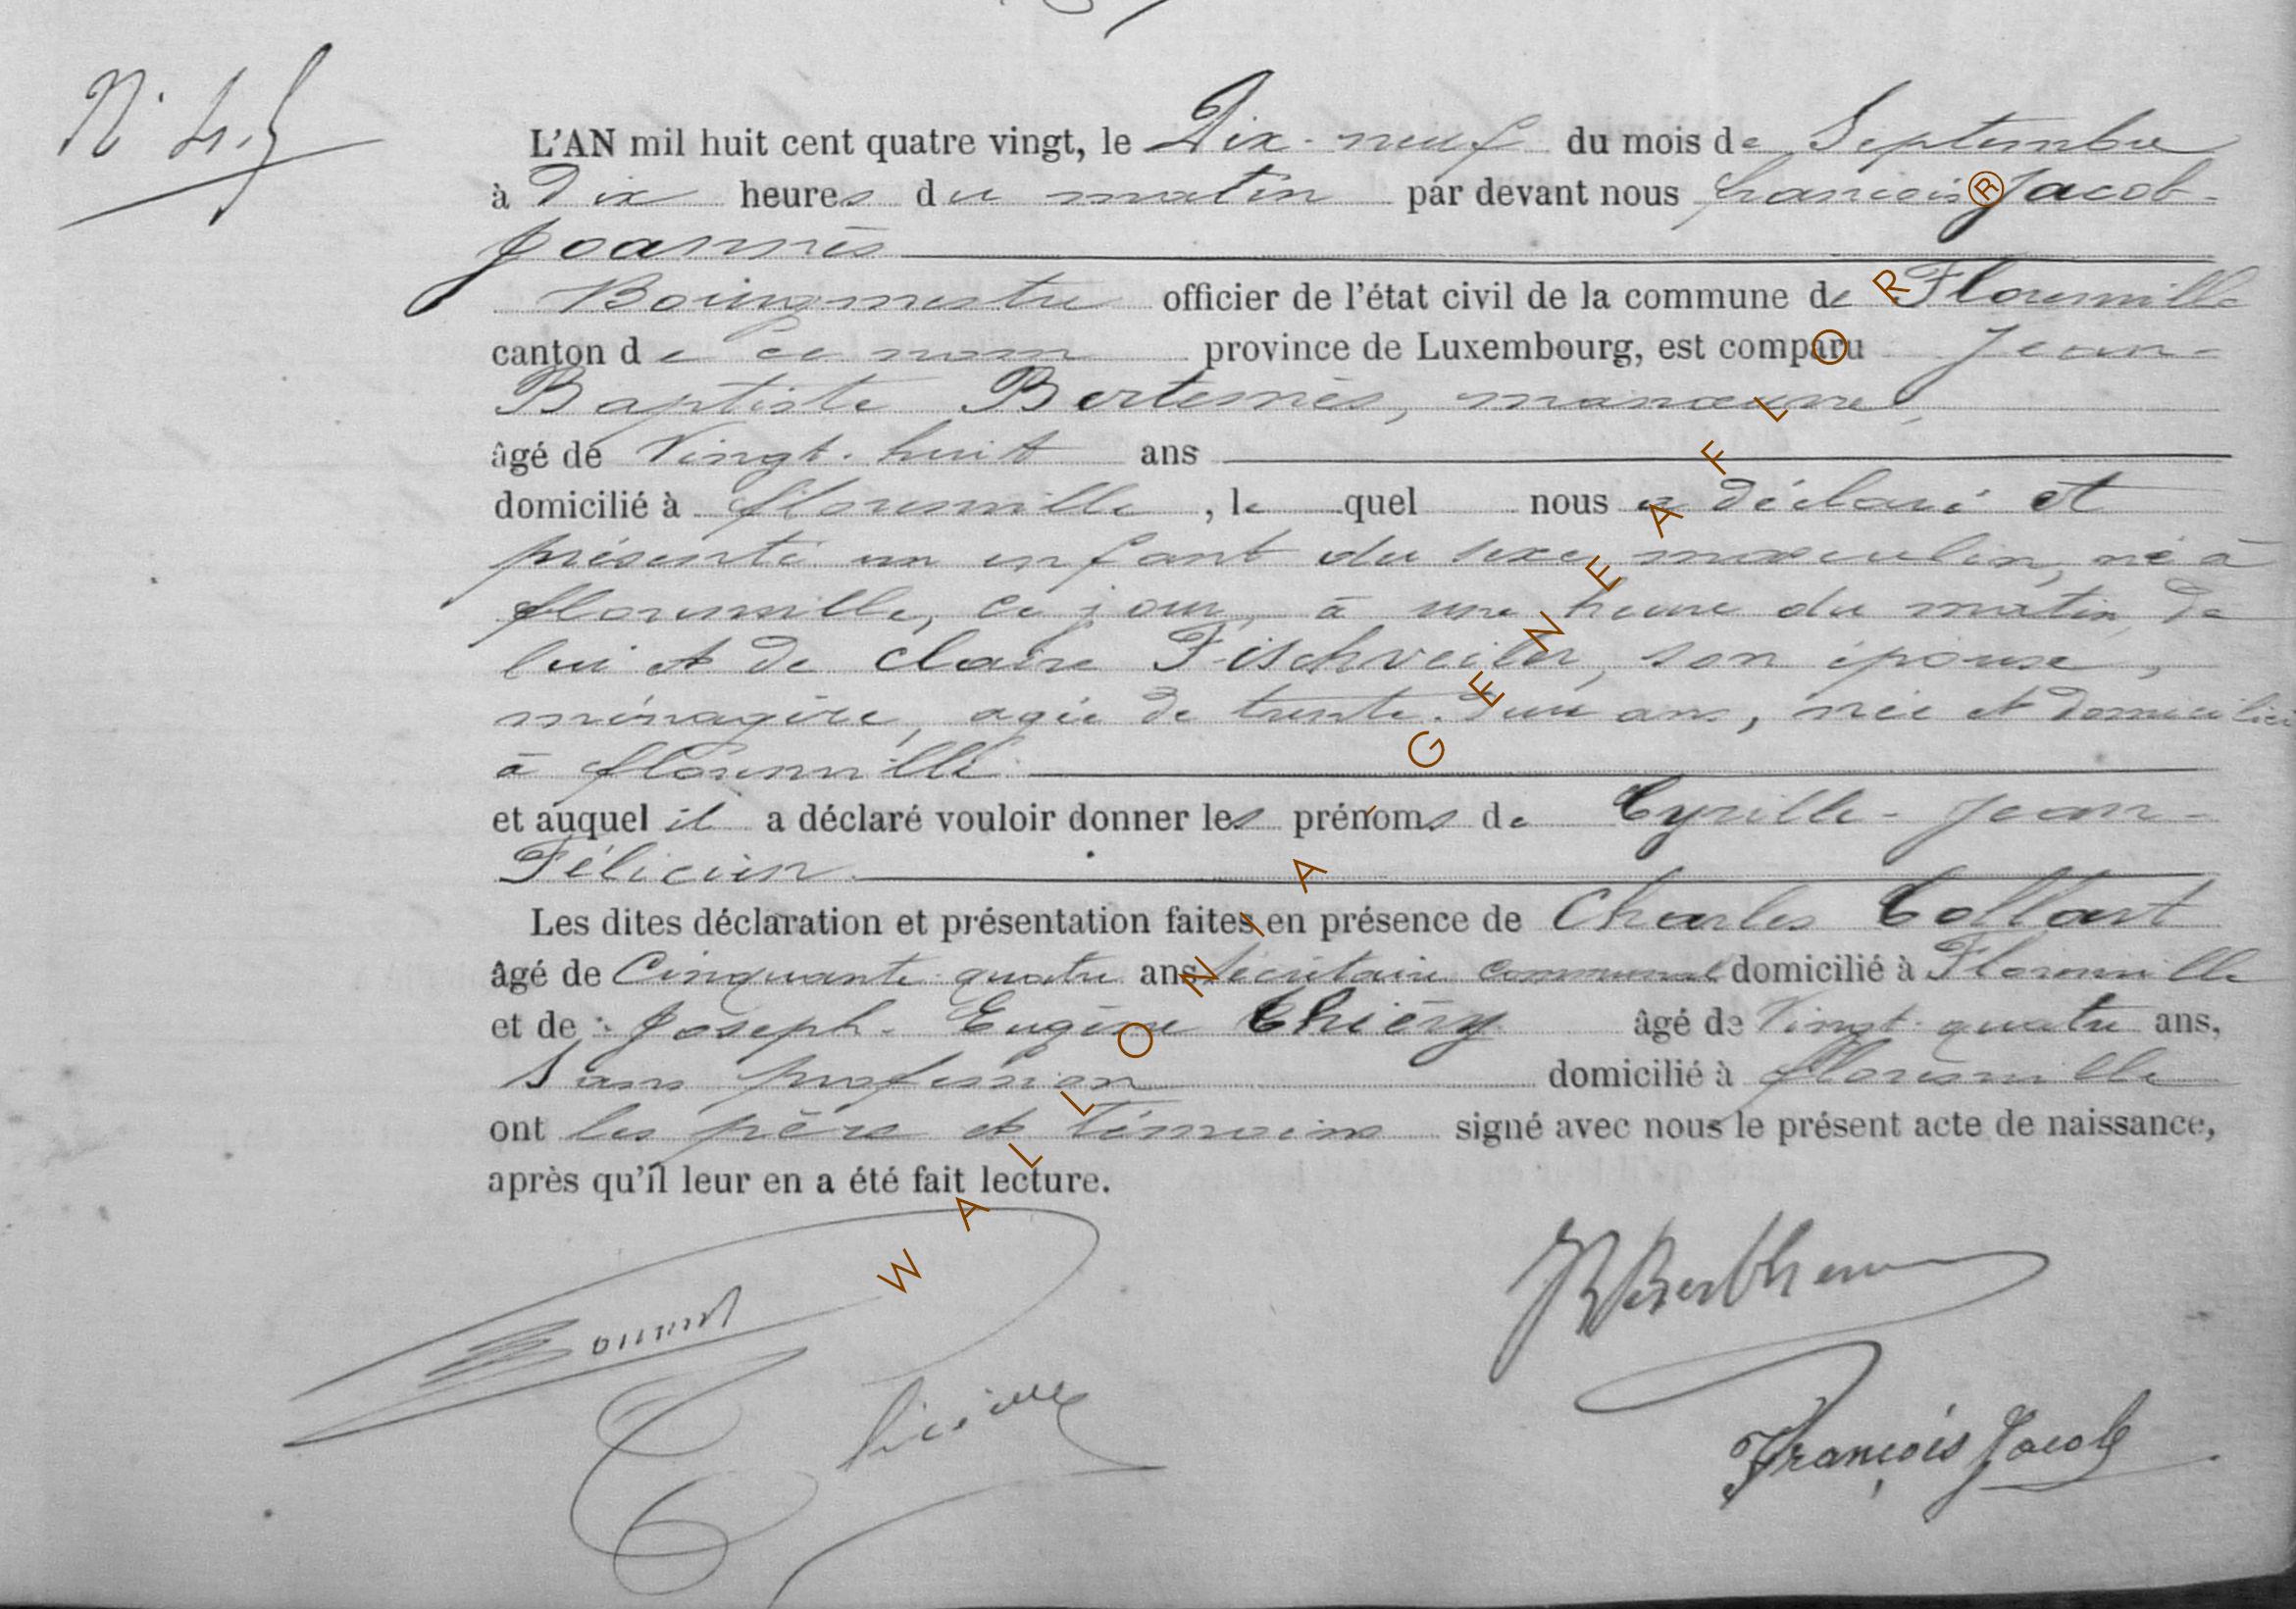 N° 45
L'AN mil huit cent quatre vingt, le Dix-neuf du mois de Septembre
à Dix heures du matin par devant nous françois Jacob-
Joannès
Bourgmestre officier de l'état civil de la commune de Florenville
canton de ce nom province de Luxembourg, est comparu Jean-
Baptiste Bertemès, manœuvre,
âgé de Vingt-huit ans
domicilié à florenville, le quel nous a déclaré et
présenté un enfant du sexe masculin, né à
florenville, ce jour, à une heure du matin, de
lui et de Claire Fischveiler, son épouse,
ménagère, agée de trente-deux ans, née et domiciliée
à florenville
et auquel il a déclaré vouloir donner les prénoms de Cyrille-Jean-
Félicien
Les dites déclaration et présentation faites en présence de Charles Collart
âgé de Cinquante-quatre ans secrétaire communal domicilié à Florenville
et de Joseph-Eugène Thiéry âgé de Vingt-quatre ans,
Sans profession domicilié à florenville
ont les père et témoins signé avec nous le présent acte de naissance,
après qu'il leur en a été fait lecture.
François Jacob
WALLONIA GENEAFLOR ®